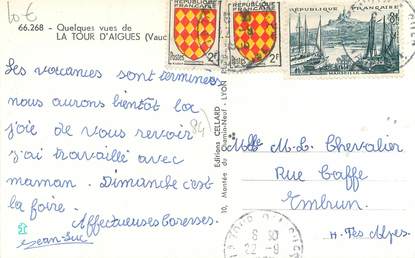 10€
66.268 - Quelques vues de
LA TOUR D'AIGUES (Vauc
Les vacances sont terminées
nous aurons bientôt la
joie de vous revoir
j'ai travaillé avec
maman. Dimanche c'est
la foire.
Affectueuses caresses.
Jean-Luc
84
Editions CELLARD
10, Montée du Chemin-Neuf - LYON
REPUBLIQUE FRANÇAISE
POSTES
2F
REPUBLIQUE FRANÇAISE
POSTES
2F
REPUBLIQUE FRANÇAISE
8F
MARSEILLE
Mlle M.L. Chevalier
Rue Caffe
Embrun
H.tes Alpes.
LA TOUR D'AIGUES
8 30
22-9